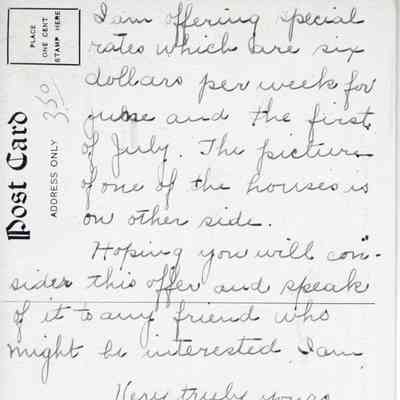 PLACE
ONE CENT
STAMP HERE
3.50
Post Card
ADDRESS ONLY
I am offering special
rates which are six
dollars per week for
june and the first
of July. The picture
of one of the houses is
on other side.
Hoping you will con-
sider this offer and speak
of it to any friend who
might be interested I am
Very truly yours